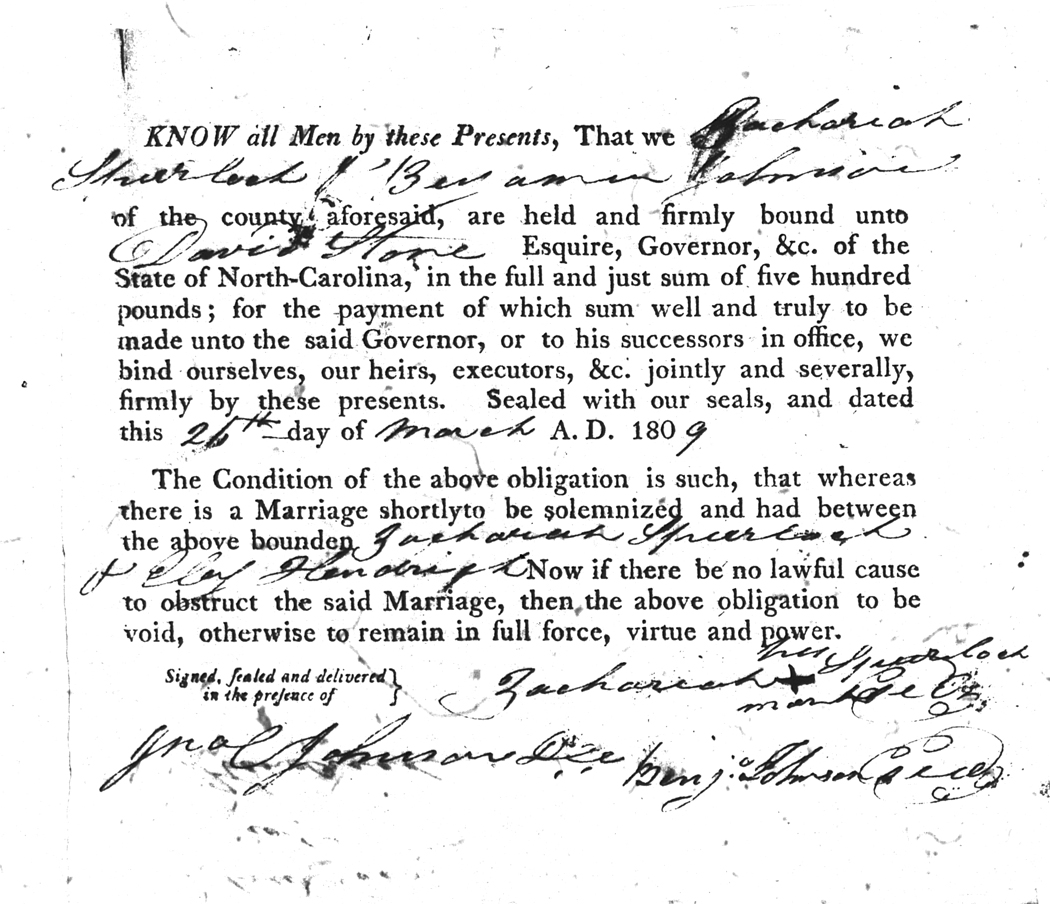 KNOW all Men by these Presents, That we Zachariah
Spurlock & Benjamin Johnson
of the county aforesaid, are held and firmly bound unto
David Stone Esquire, Governor, &c. of the
State of North-Carolina, in the full and just sum of five hundred
pounds; for the payment of which sum well and truly to be
made unto the said Governor, or to his successors in office, we
bind ourselves, our heirs, executors, &c. jointly and severally,
firmly by these presents. Sealed with our seals, and dated
this 26th day of March A. D. 1809
The Condition of the above obligation is such, that whereas
there is a Marriage shortlyto be solemnized and had between
the above bounden Zachariah Spurlock
& Now if there be no lawful cause
to obstruct the said Marriage, then the above obligation to be
void, otherwise to remain in full force, virtue and power.
his
Signed, sealed and delivered } Zachariah + Spurlock
in the presence of mark
Jno C Johnson Benj. Johnson